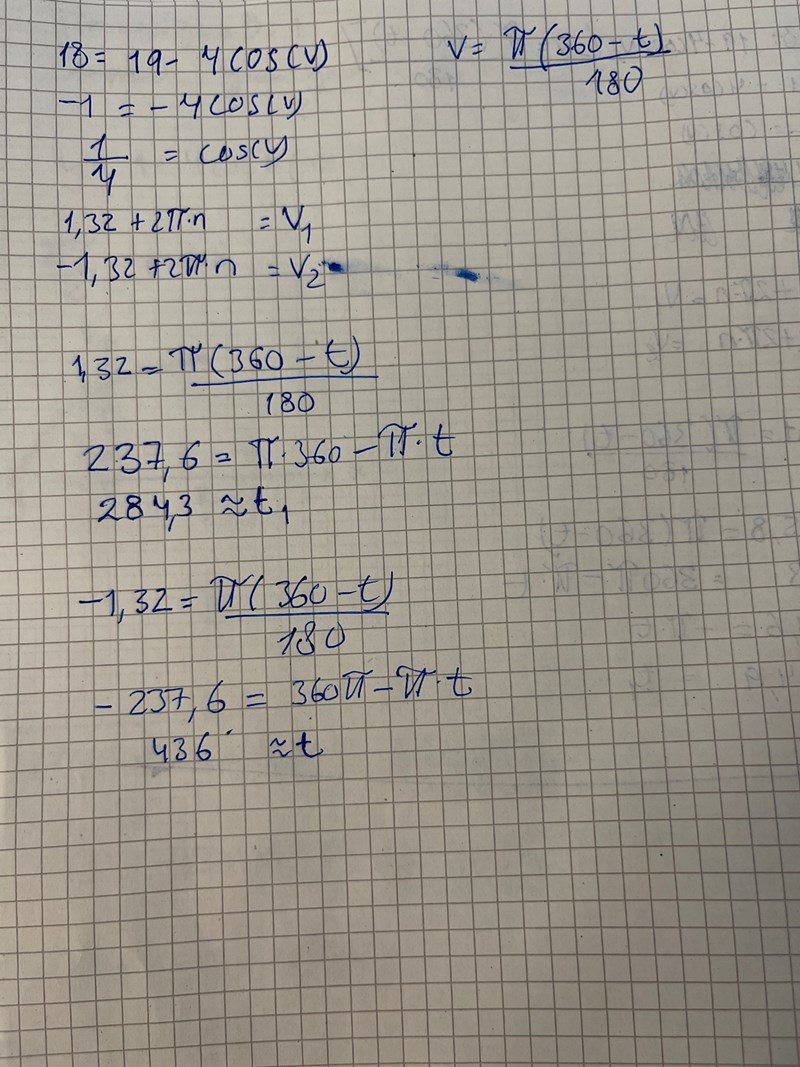 18 = 19 - 4cos(v)
v = π(360 - t)/180
-1 = -4cos(v)
1/4 = cos(v)
1,32 + 2π·n = v₁
-1,32 + 2π·n = v₂
1,32 = π(360 - t)/180
237,6 = π·360 - π·t
284,3 ≈ t₁
-1,32 = π(360 - t)/180
-237,6 = 360π - π·t
436 ≈ t